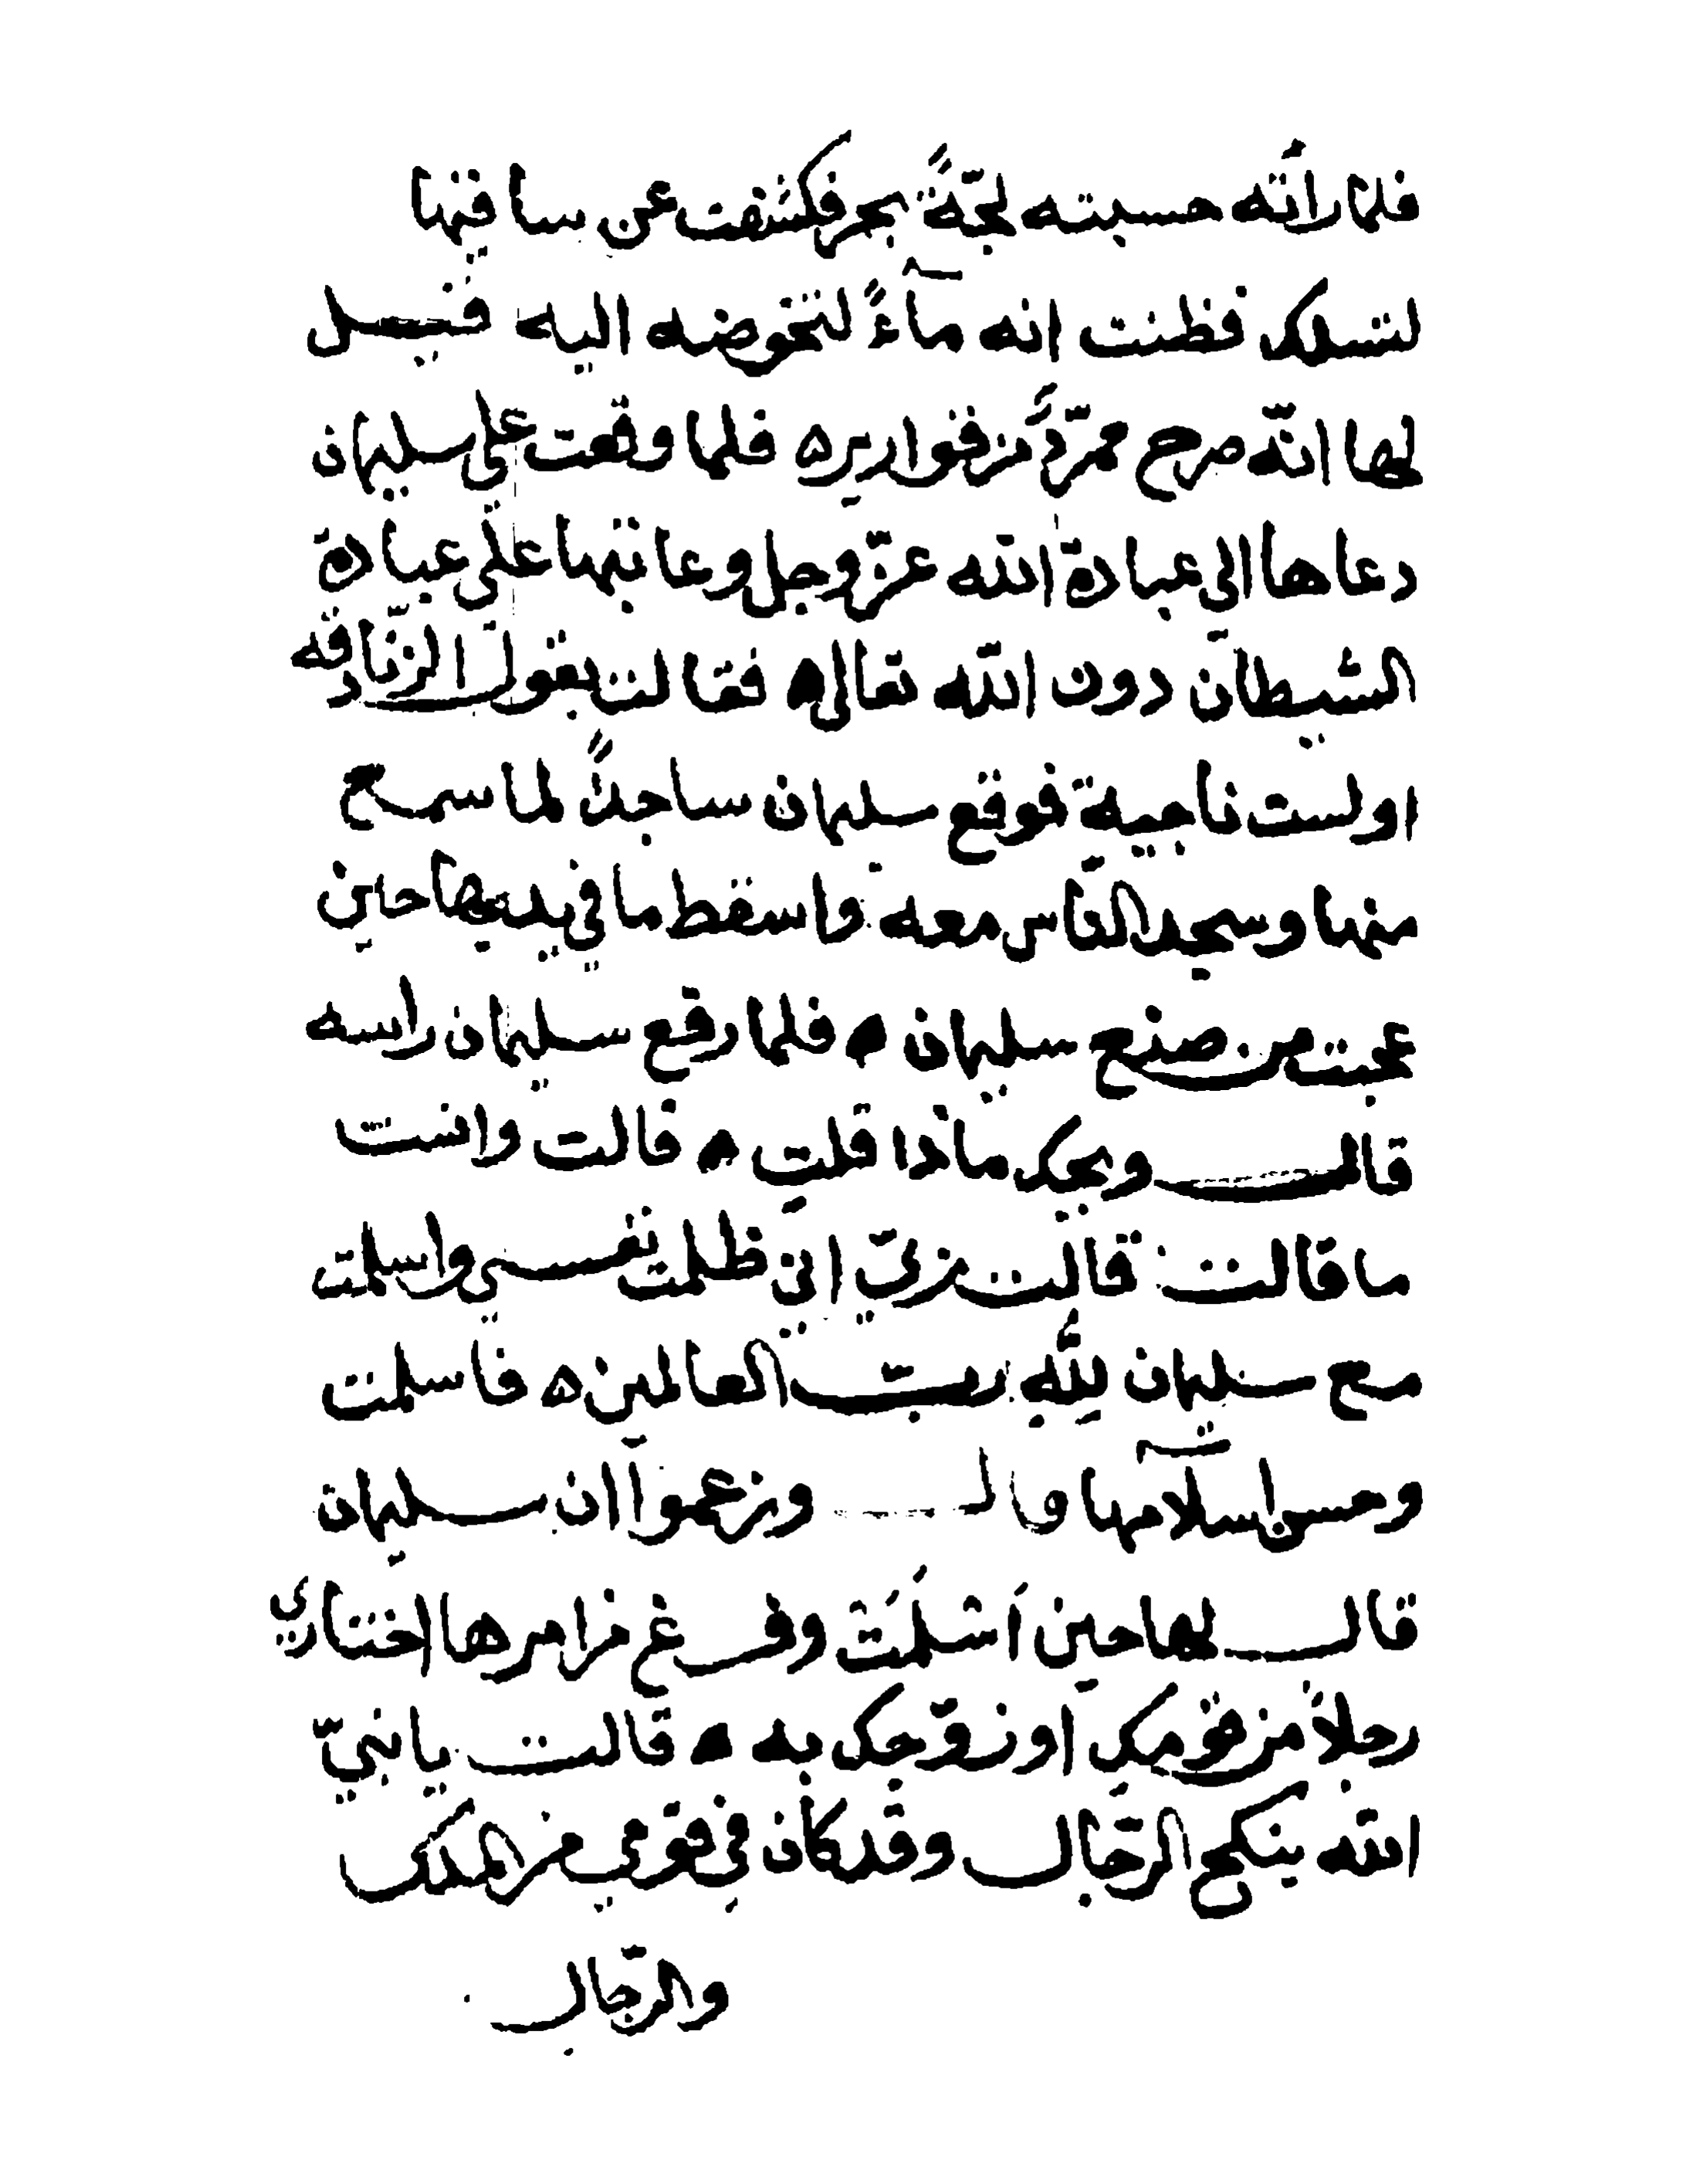 فلما رأته حسبته لجّةً بحر فكشفت عن ساقيها
لتسلك فظنت انه مآءً لتخوضه اليه فقيل
لها انّه صرح ممرّدٌ من قوارير ه فلما وقعت على سليمان
دعاها الى عبادة الله عزّ وجل وعاتبها على عبادة
الشيطان دون الله تعالى ه فقالت بقول الزّنادقه
او لست ناجية فوقع سليمان ساجداً لما سمع
منها وسجد الناس معه واسقط ما في يديها حين
عجبت من صنع سليمان ه فلما رفع سليمان راسه
قال ويحك ماذا قلتِ ه قالت وانست
ما قالت قالت ربّي اني ظلمت نفسي واسلمت
مع سليمان لِلّٰهِ ربّ العالمين ه فاسلمت
وحسن اسلامها قال وزعموا ان سليمان
قال لها حين اَسْلَمَتْ وفرغ من امرها اختاري
رجلاً من قومكِ اوزوّجكِ به ه قالت يا نبيّ
الله ينكح الرّجال وقد كان في قومي من الملك
والرّجال